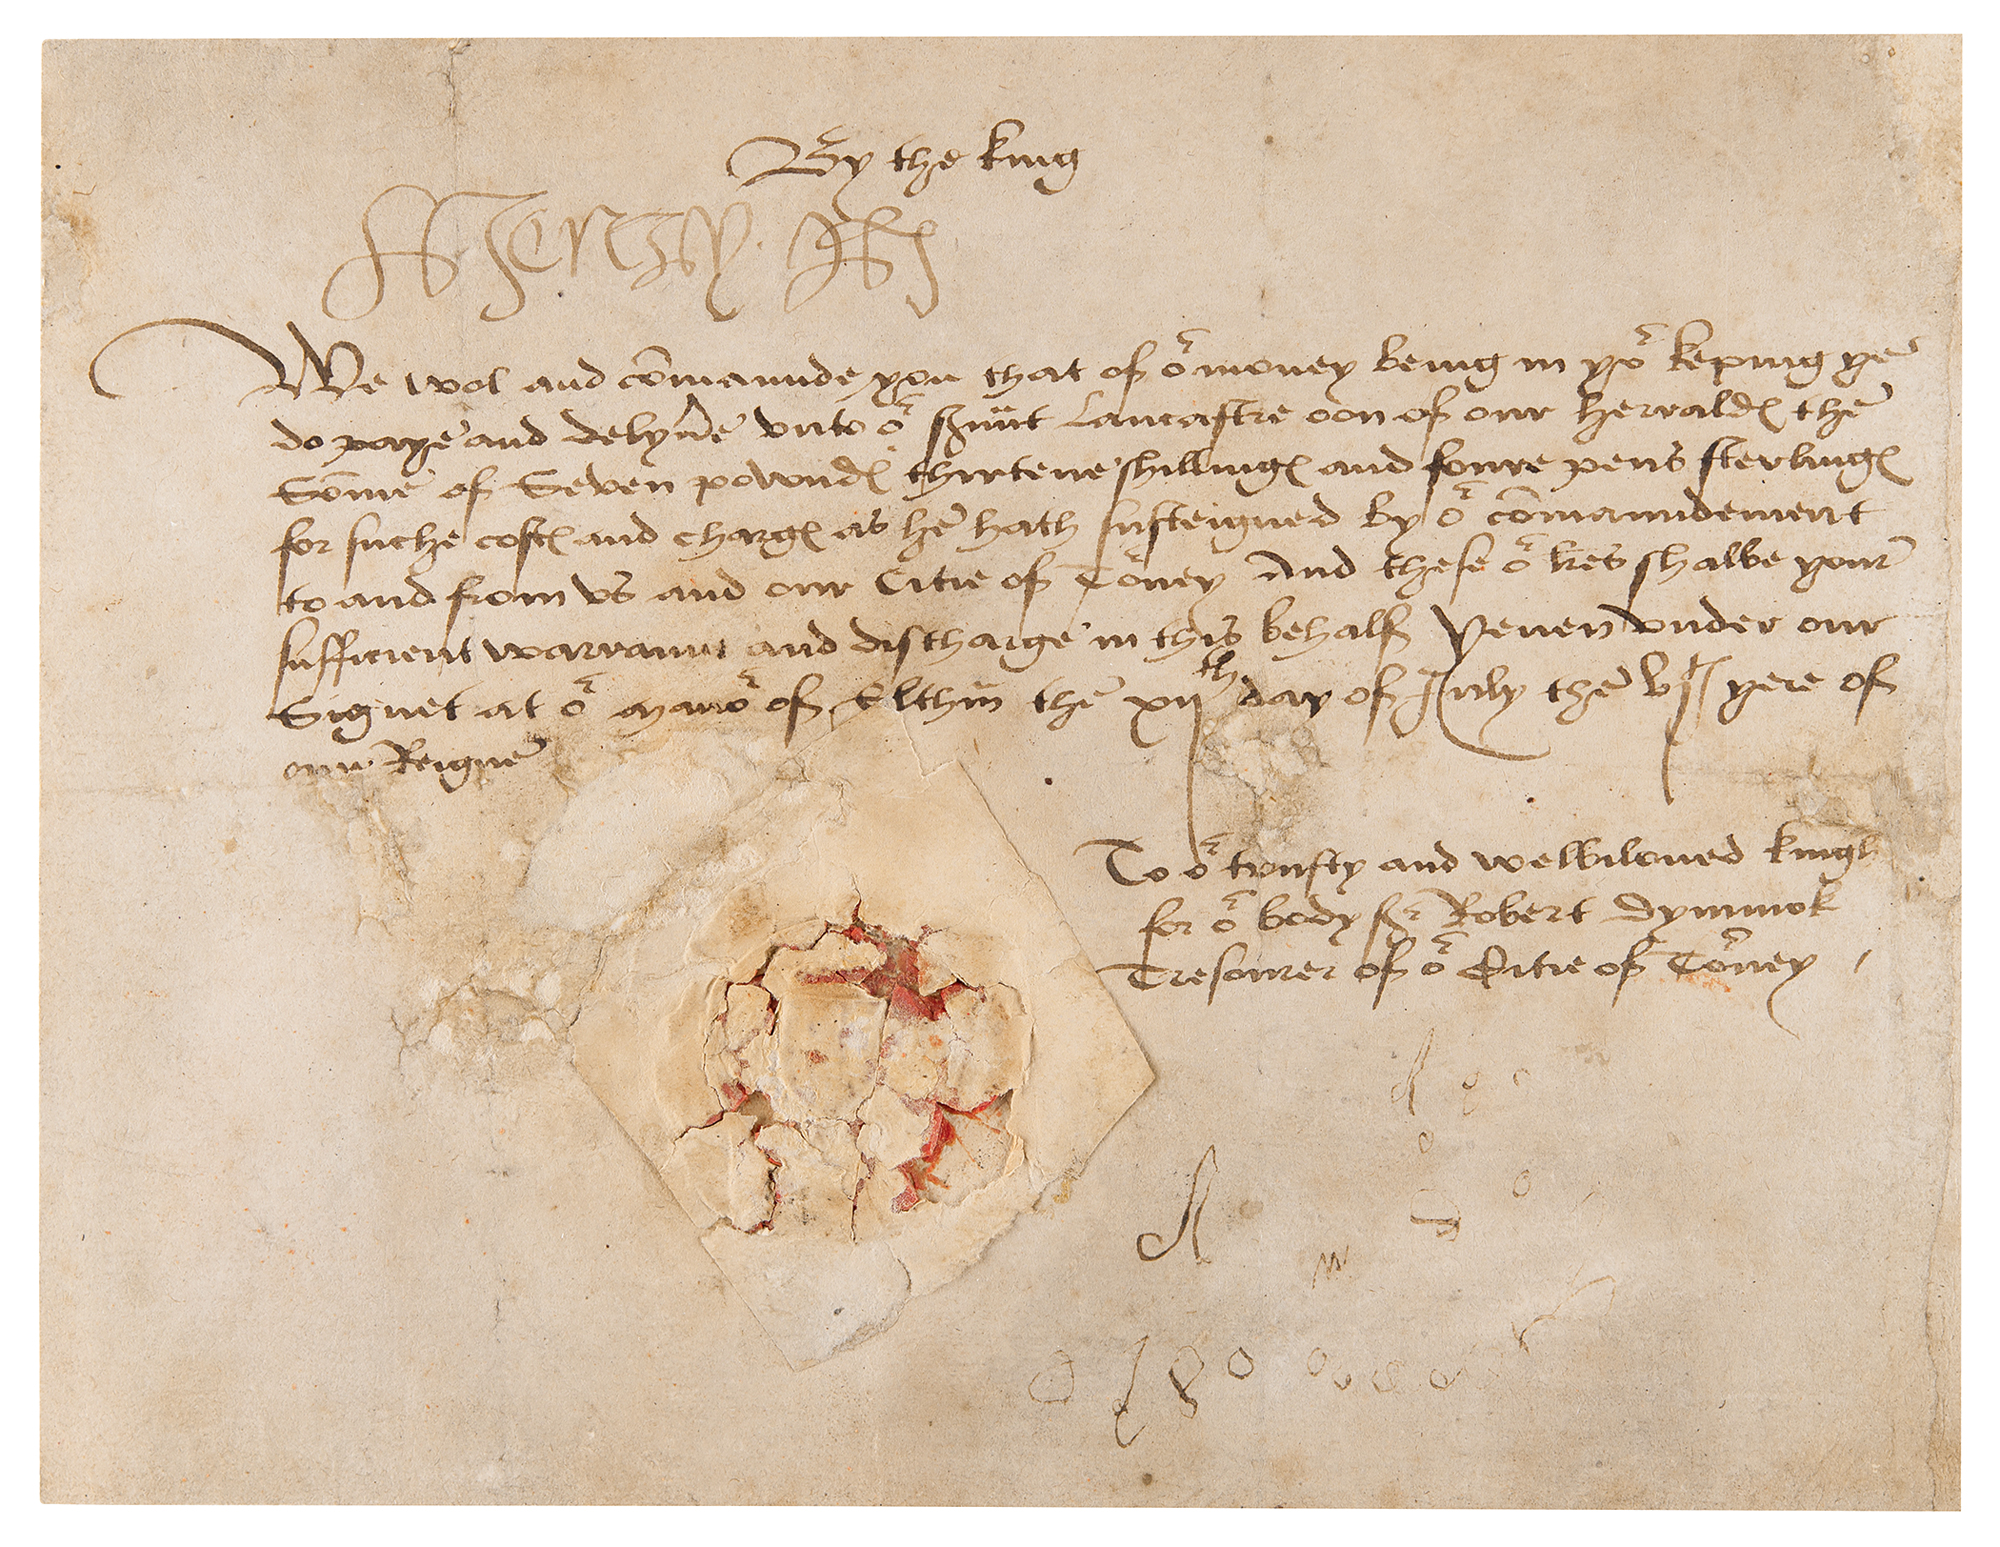 By the king
Henry R
We wol and cõmaunde you that of oʳ money being in yoʳ keping ye
do paye and delyũe vnto oʳ sũnt Lancastre oon of our herraldꝭ the
Sõme of Seven powndꝭ thirtene shillingꝭ and foure pens sterlingꝭ
for suche costꝭ and chargꝭ as he hath susteigned by oʳ cõmaundement
to and from vs and our Citie of Tõney And these oʳ lr̃es shalbe your
sufficient warraunt and discharge in this behalf Yeuen vnder our
Signet at oʳ Manoʳ of Elthm̃ the xijᵗʰ day of July the vjᵗ yere of
our Reigne
To oʳ trusty and welbiloued knigh
for oʳ body Sr Robert Dymmok
Tresourer of oʳ Citie of Tõney